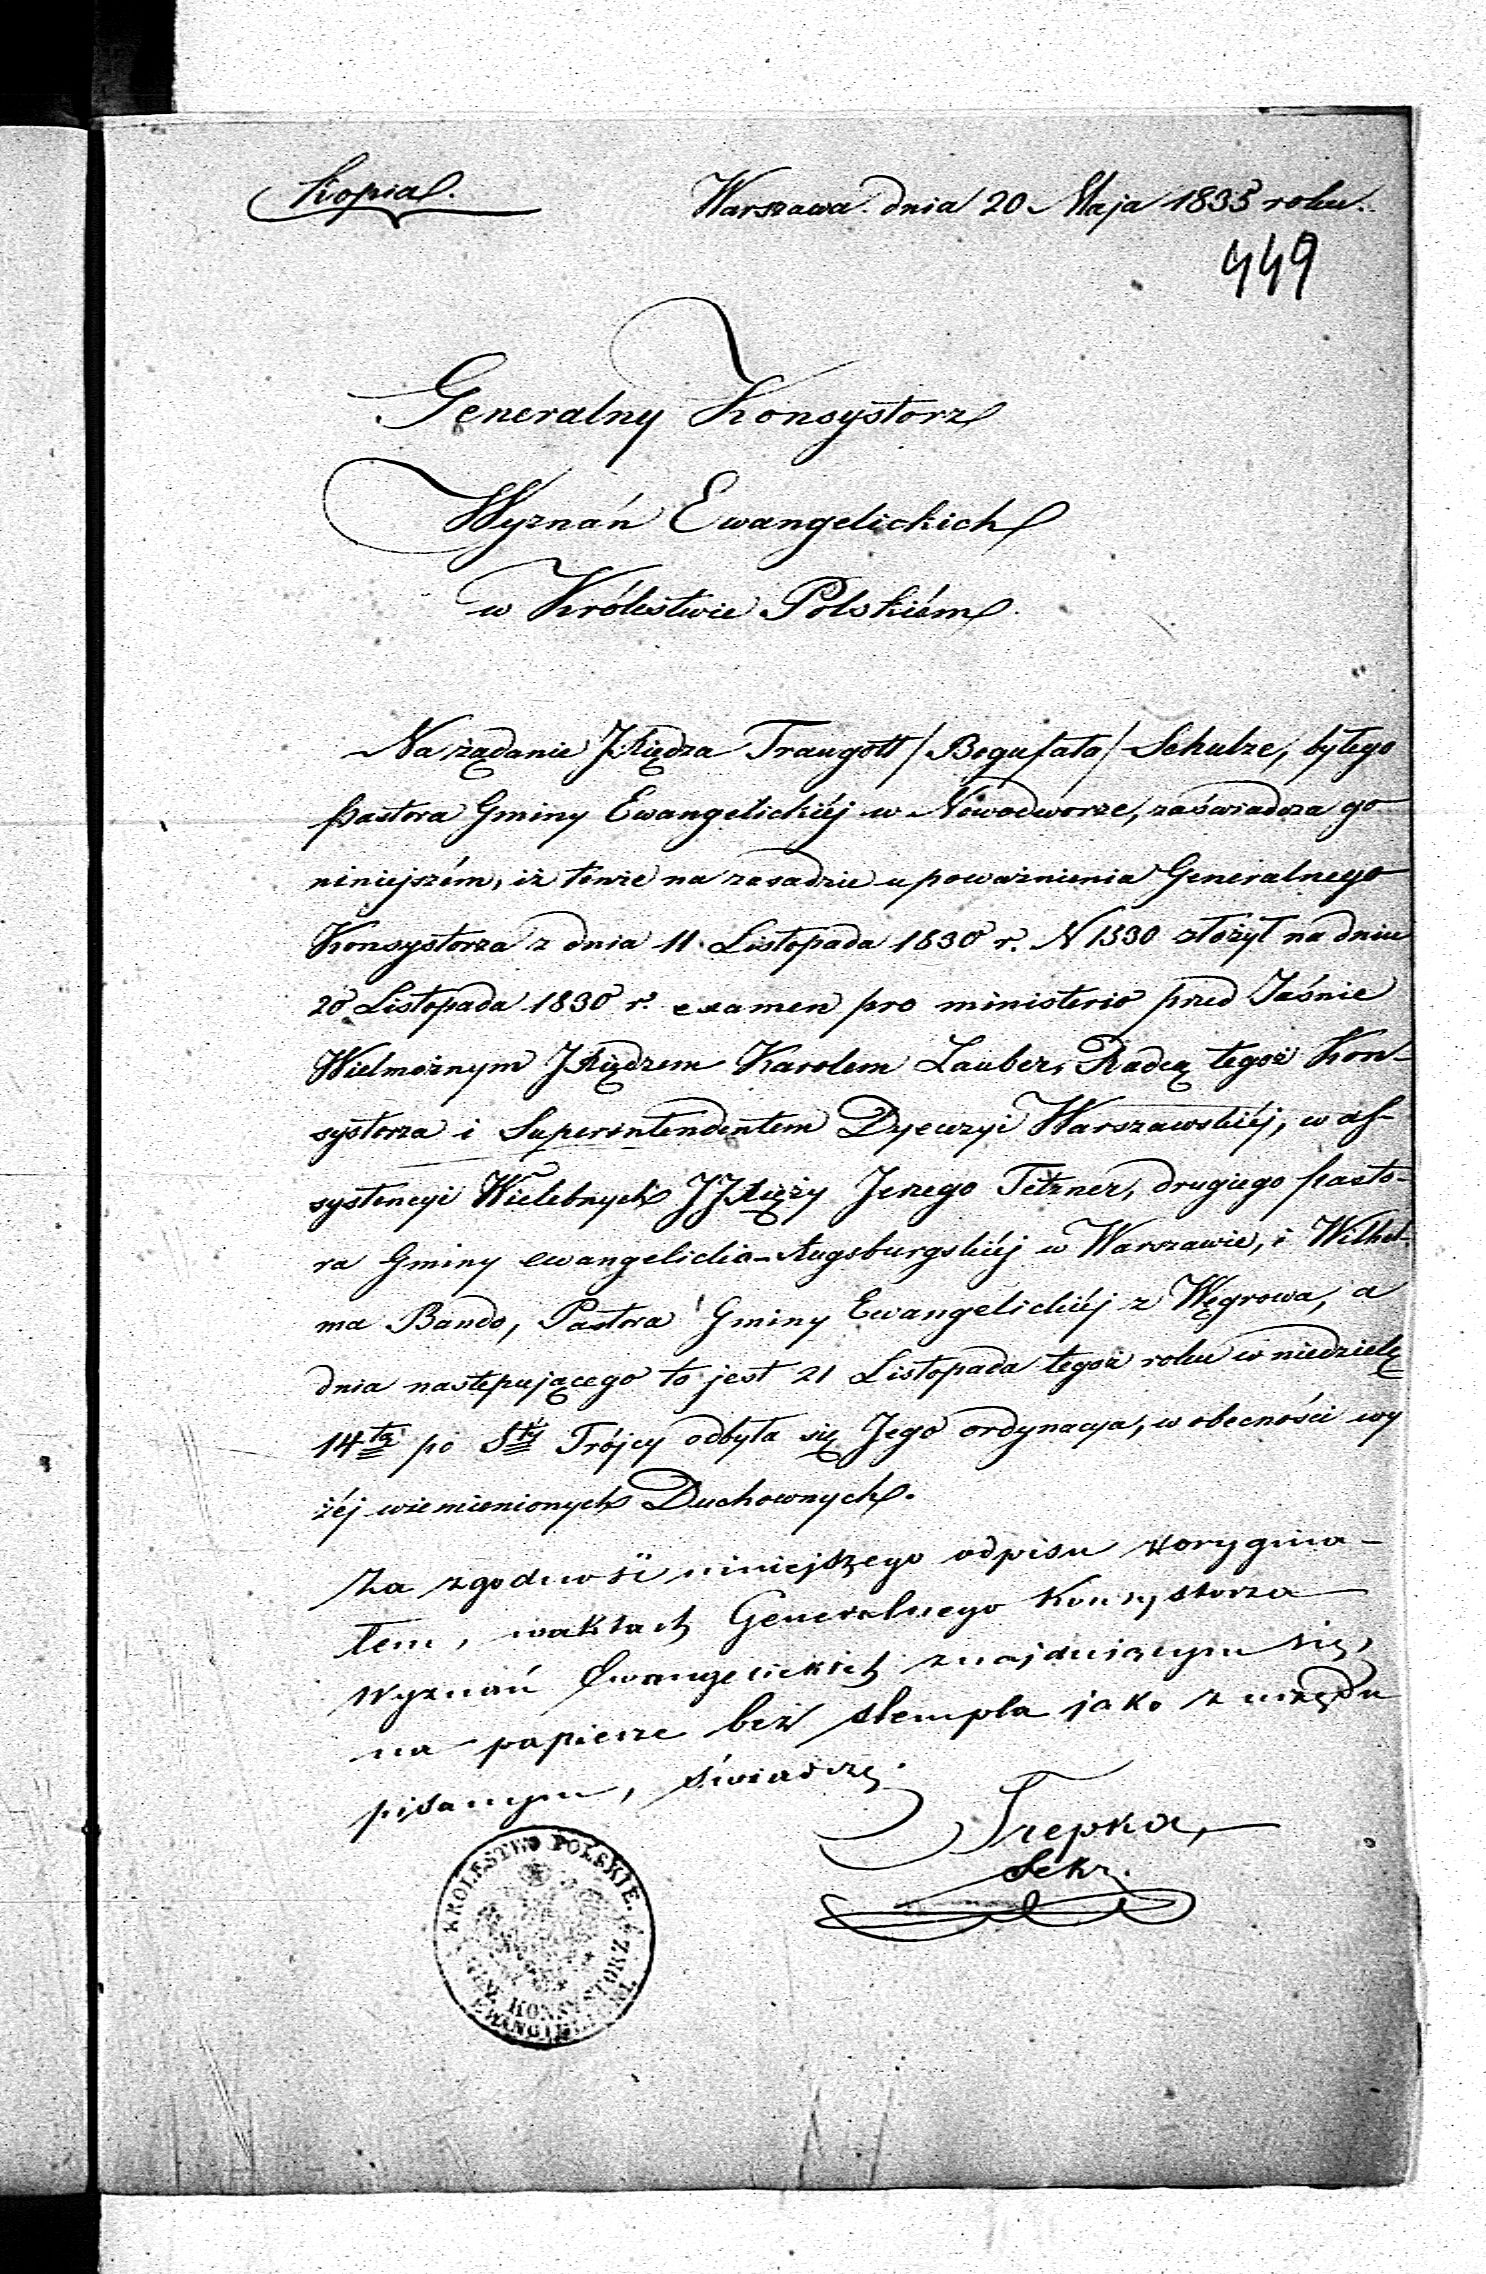 Kopia.
Warszawa dnia 20 Maja 1833 roku.
449
Generalny Konsystorz
Wyznań Ewangelickich
w Królestwie Polskiém
Na żądanie JXiędza Traugott /Bogufała/ Schulze, byłego
pastora Gminy Ewangelickiéj w Nowodworze, zaświadcza go
niniejszém, iż tenże na zasadzie upoważnienia Generalnego
Konsystorza z dnia 11 Listopada 1830 r. N 1330 złożył na dniu
20 Listopada 1830 r. examen pro ministerio przed Jaśnie
Wielmożnym JXiędzem Karolem Lauber, Radcą tegoż Kon-
systorza i Superintendentem Dyecezyi Warszawskiéj, w as-
systencyi Wielebnych JJXięży Jerzego Tetzner, drugiego pasto-
ra Gminy ewangelicko-Augsburgskiéj w Warszawie, i Wilhel-
ma Bando, Pastora Gminy Ewangelickiéj z Węgrowa, a
dnia następującego to jest 21 Listopada tegoż roku w niedzielę
14tą po Stéj Trójcy odbyła się Jego ordynacya, w obecności wy
żéj wzmienionych Duchownych.
Za zgodność niniejszego odpisu z orygina-
łem, w aktach Generalnego Konsystorza
Wyznań Ewangelickich znajduiącym się,
na papierze bez stempla jako z urzędu
pisanym, świadczę.
Trepka,
Sekr.
KRÓLESTWO POLSKIE.
GEN. KONSYSTORZ